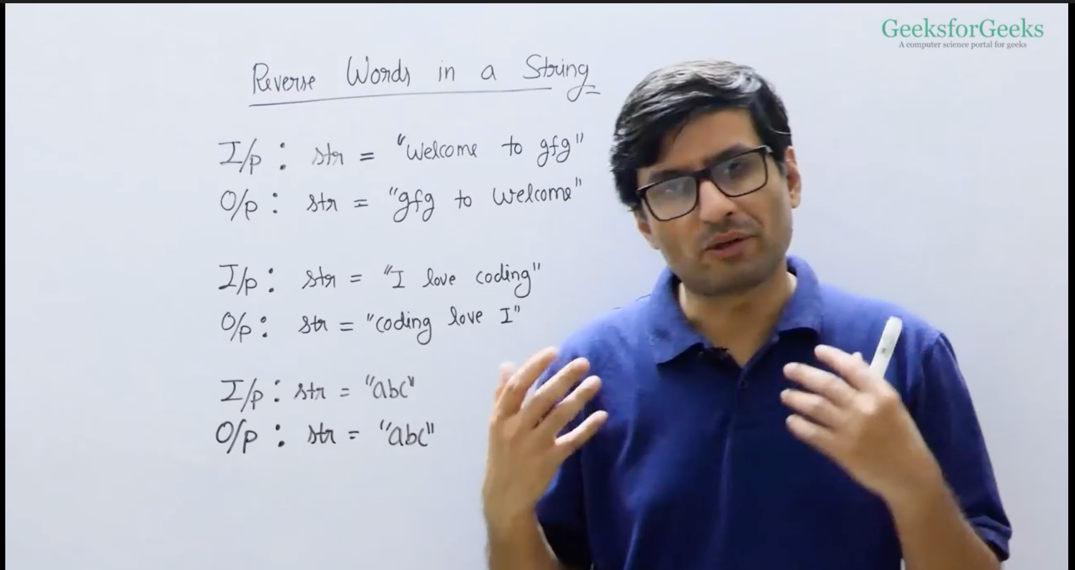 GeeksforGeeks
A computer science portal for geeks
Reverse Words in a String
I/p : str = "Welcome to gfg"
O/p : str = "gfg to Welcome"
I/p : str = "I love coding"
O/p : str = "coding love I"
I/p : str = "abc"
O/p : str = "abc"